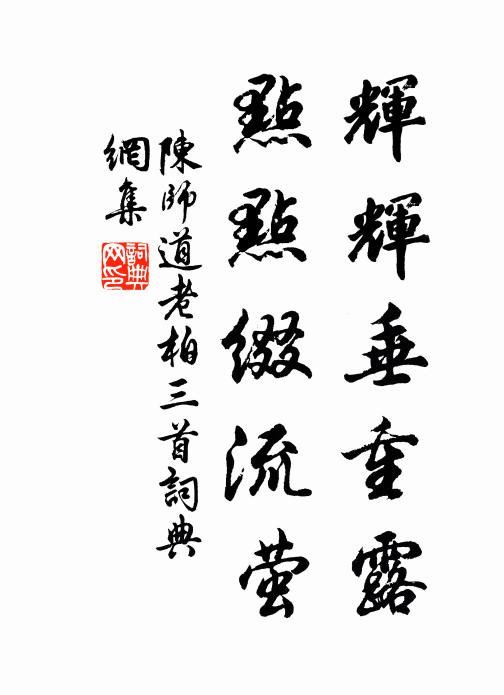 輝輝垂重露
點點綴流萤
陳師道老柏三首詞典
網集
詞典
网印